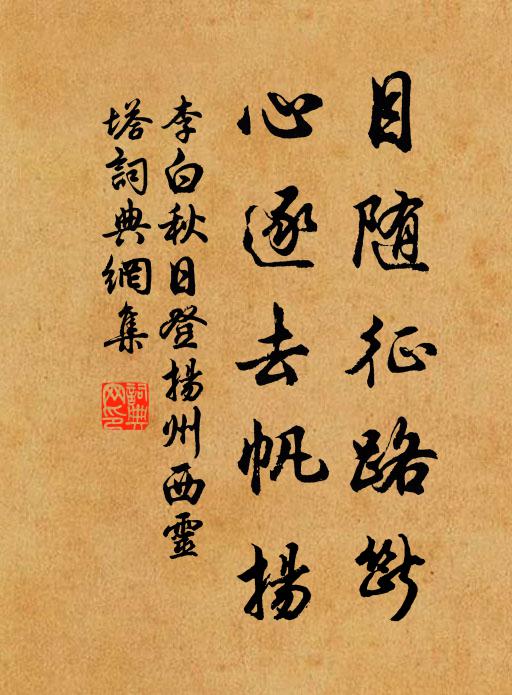 目随征路斷
心逐去帆揚
李白秋日登揚州西靈
塔詞典網集
詞典網印